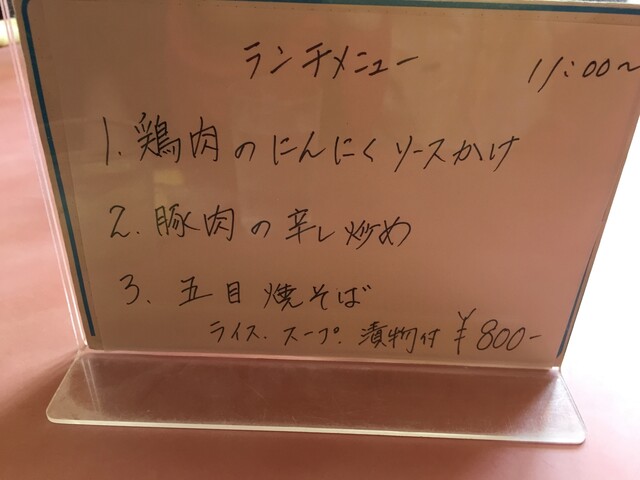 ランチメニュー 11:00〜
1. 鶏肉のにんにくソースかけ
2. 豚肉の辛し炒め
3. 五目焼そば
ライス.スープ.漬物付 ¥800-